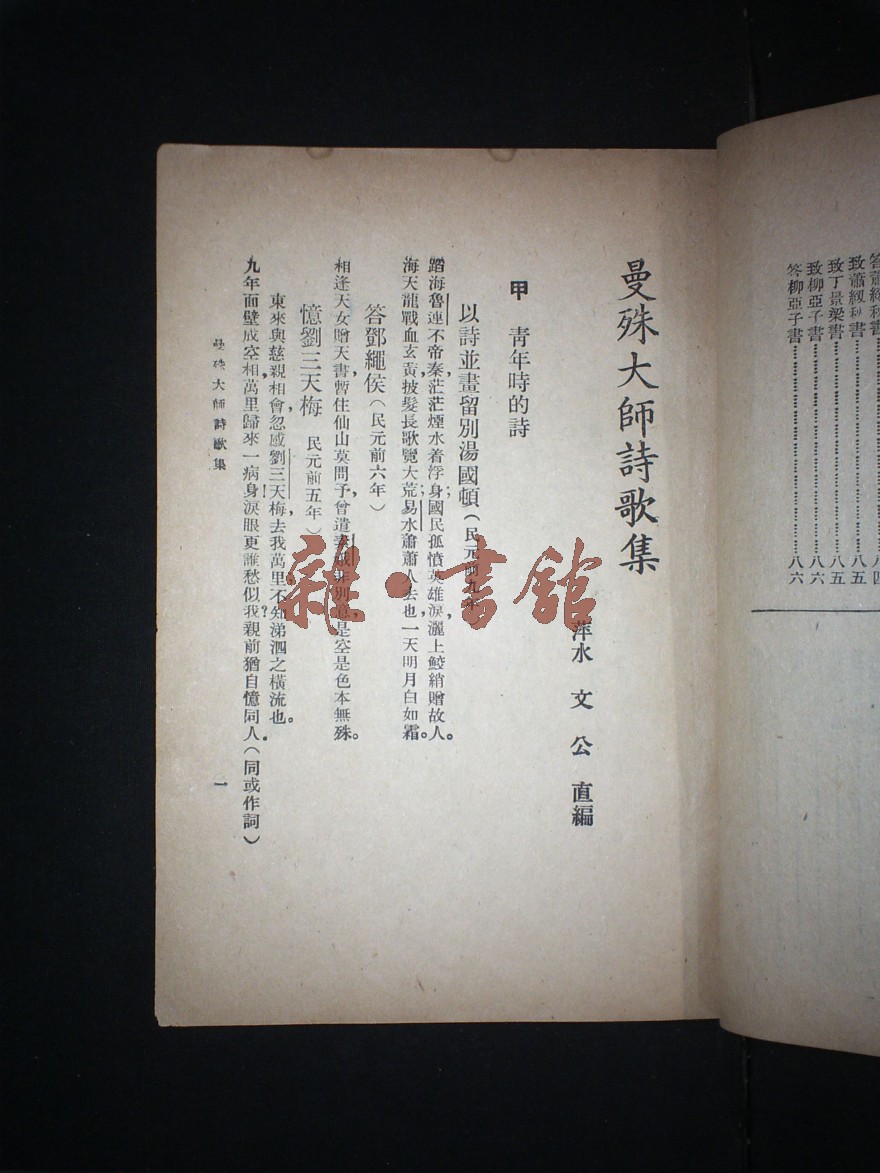 答蕭紉秋書……八四
致蕭紉秋書……八五
致丁景梁書……八五
致柳亞子書……八六
答柳亞子書……八六
曼殊大師詩歌集
萍水 文 公 直編
甲 青年時的詩
以詩並畫留別湯國頓(民元前九年)
蹈海魯連不帝秦,茫茫煙水着浮身;國民孤憤英雄淚,灑上鮫綃贈故人。
海天龍戰血玄黃,披髮長歌覽大荒;易水蕭蕭人去也,一天明月白如霜。
答鄧繩侯(民元前六年)
相逢天女贈天書,暫住仙山莫問予,曾遣 非別意,是空是色本無殊。
憶劉三天梅 民元前五年)
東來與慈親相會,忽感劉三天梅去我萬里,不知涕泗之橫流也。
九年面壁成空相,萬里歸來一病身!淚眼更誰愁似我?親前猶自憶同人.(同或作詞)
曼殊大師詩歌集
一
雜·書館